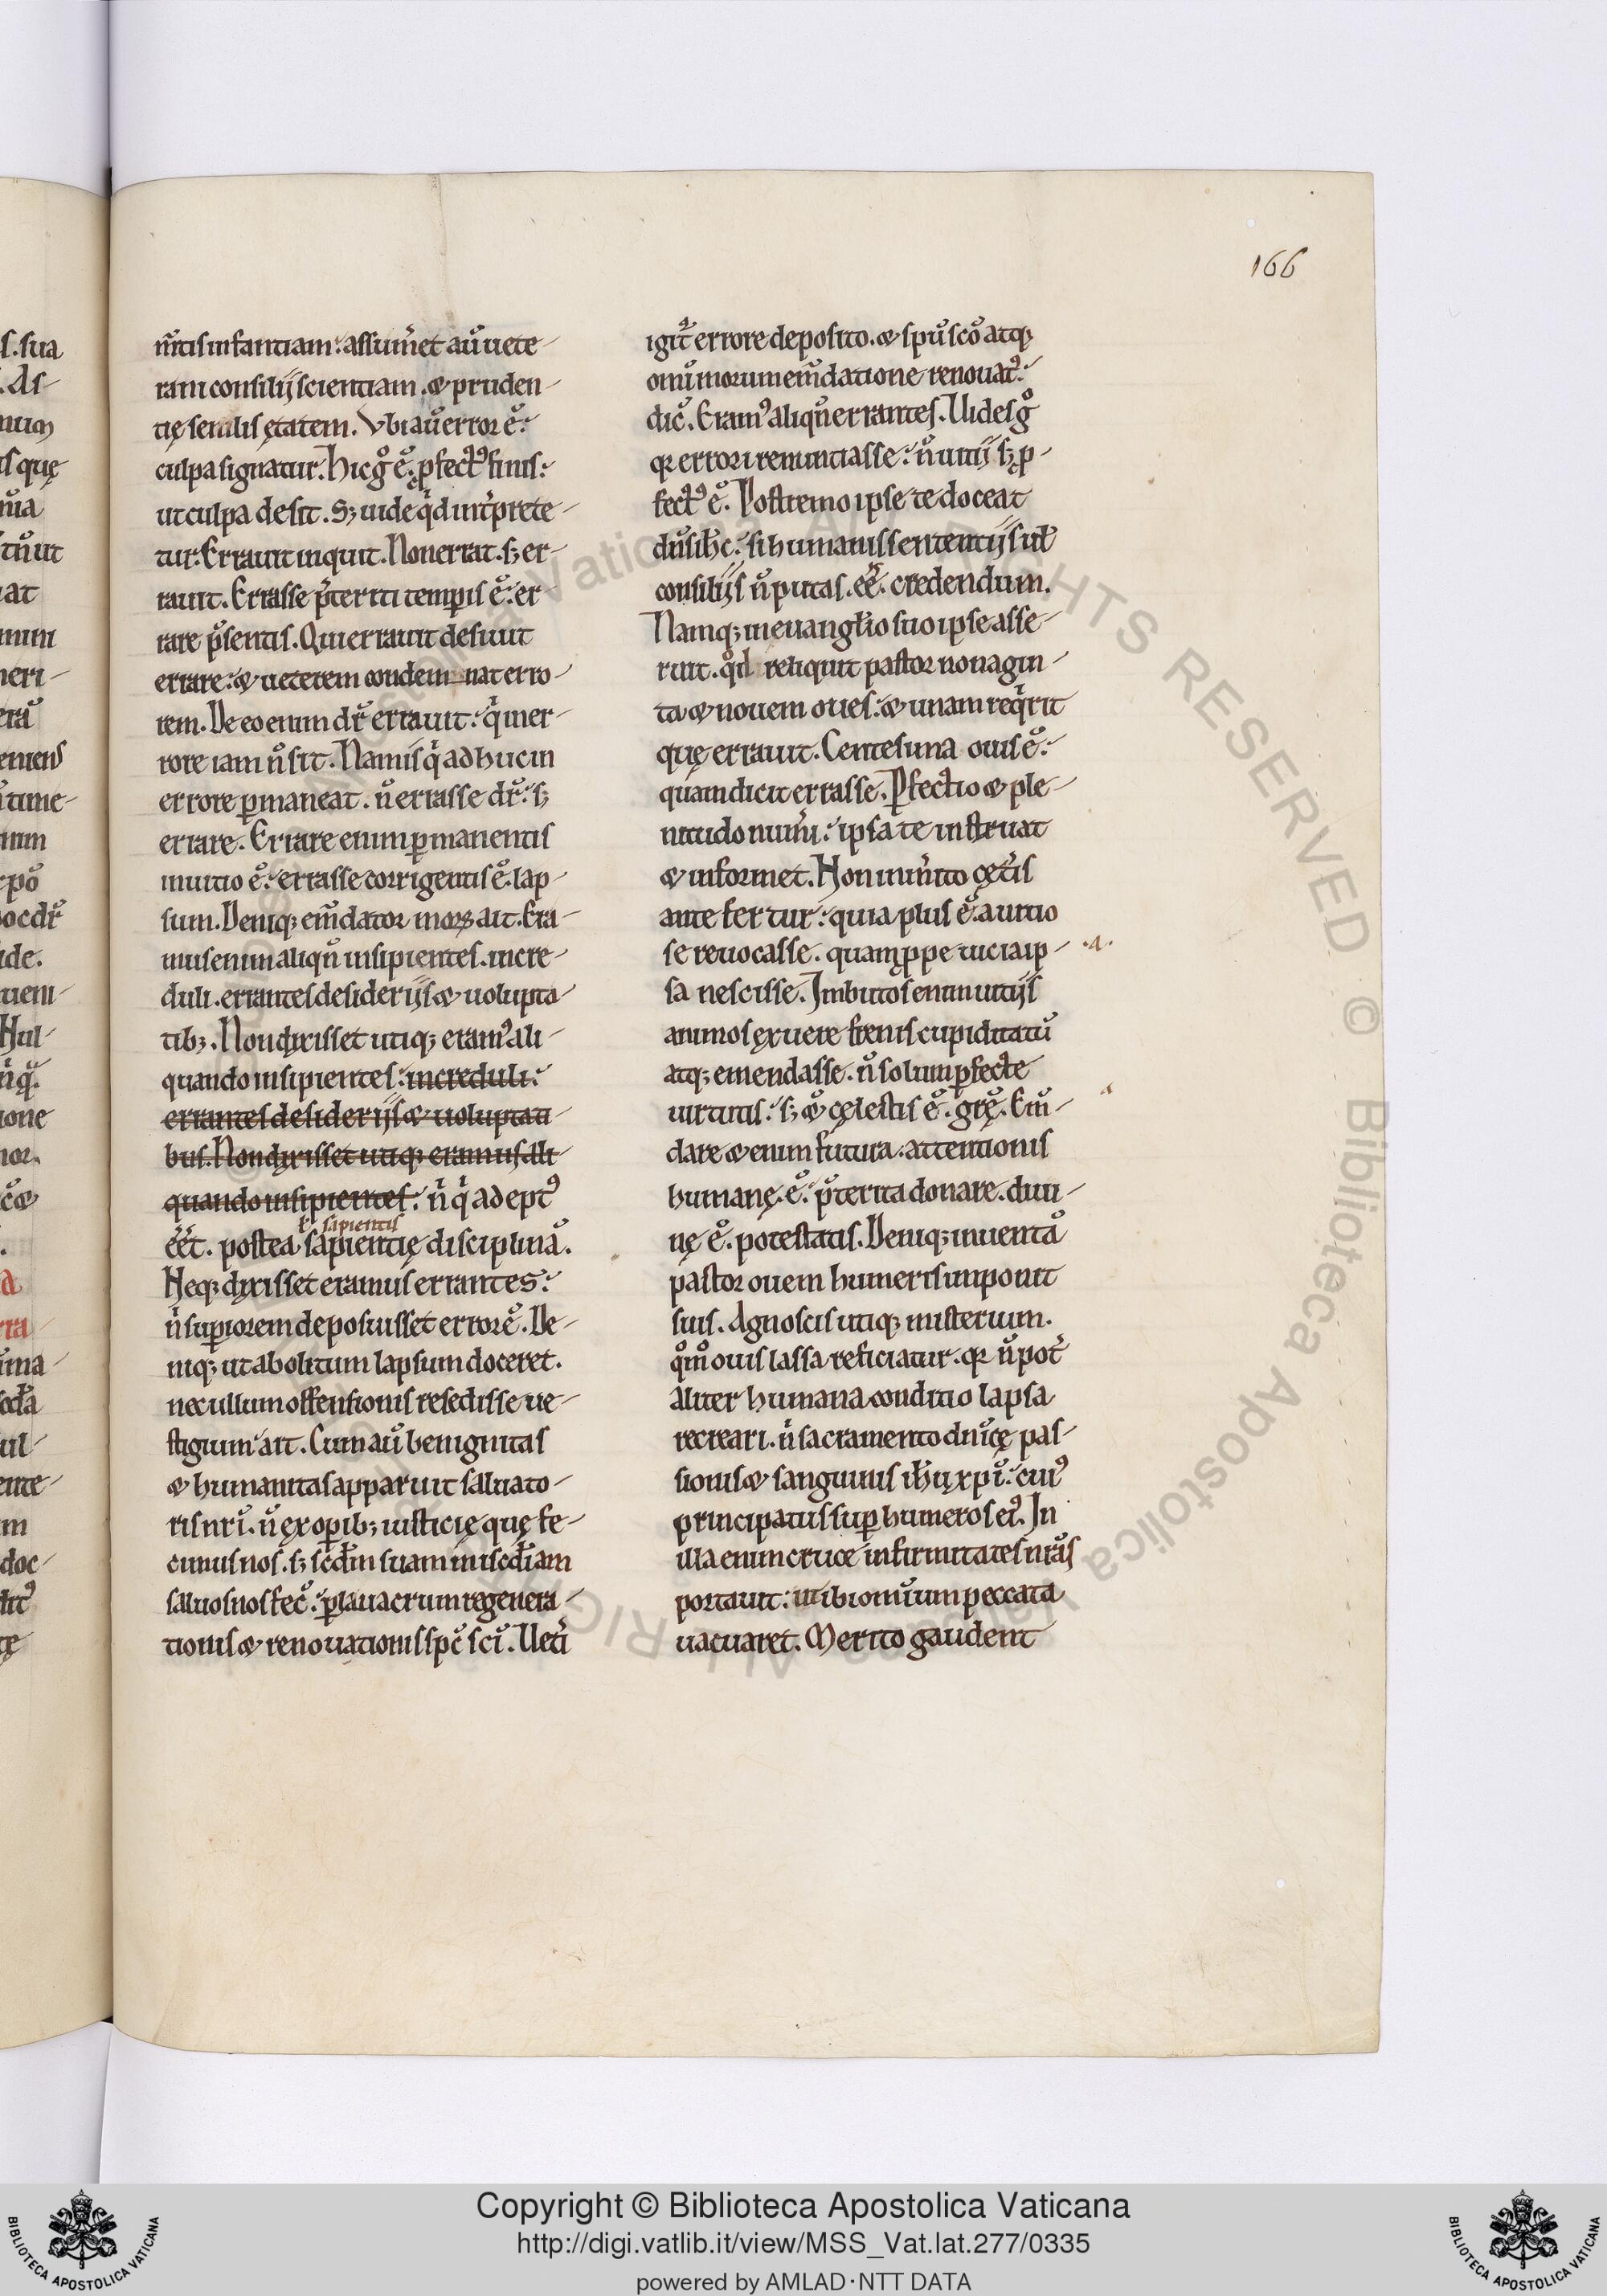 166
s. sua
. As-
num
is quę
nua
tnut
at
mum
neri-
erā
eniens
tıme-
mm
po
ocdr̄
ide.
tiem-
Hul-
n̄q̄.
ione
nor.
cōꝫ
a
rra-
uma-
scd̄a
uil-
ente-
m
doc-
dit᷒
tę
m̄tis infantiam: assum̄et aū uete-
ram consilij scientiam. & pruden-
tię senilis ętatem. Vbi aū error ē:
culpa signatur. Hic gͦ ē. ꝑfect᷒ finis:
ut culpa desit. Sꝫ uide qͥd int̄prete-
tur. Errauit inquit. Non errat. sꝫ er-
rauit. Errasse p̄teriti temꝑis ē: er-
rare p̄sentis. Qui errauit desiuit
errare: & ueterem condem_nat erro-
rem. De eo enim dr̄ errauit: qͥ in er-
rore iam n̄ sit. Nam is qͥ adhuc in
errore ꝑmaneat. n̄ errasse dr̄: sꝫ
errare. Errare enim ꝑmanentis
in uitio ē: errasse corrigentis ē. lap-
sum. Deniqꝫ em̄dator moꝝ ait. Era-
mus enim aliqn̄ insipientes. incre-
duli. errantes desiderijs & uolupta-
tibꝫ. Non dixisset utiqꝫ eram᷒ ali-
quando insipientes: increduli:
errantes desiderijs & uoluptati-
bus. Non dixisset utiqꝫ eramus ali-
quando insipientes: n̄ qͥ adept᷒
ł sapientis
eēt. postea sapientię disciplinā.
Neqꝫ dixisset eramus errantes:
n̄ suꝑiorem deposuisset errorē. De-
niqꝫ ut abolitum lapsum doceret.
nec ullum offensionis resedisse ue-
stigium ait. Cum aū benignitas
& humanitas apparuit saluato-
ris nr̄i. n̄ ex oꝑibꝫ iusticię quę fe-
cimus nos. sꝫ scd̄m suam misc̄diam
saluos nos fec̄. ꝑ lauacrum regenera-
tionis & renouationis spc̄ sci. Uet̄i
igit̄ errore deposito. & spū scō atqꝫ
omīū morum em̄datione renouat᷒:
dic̄. Eram᷒ aliqn̄ errantes. Uides gͦ
qꝛ errori renuntiasse: n̄ uitij sꝫ ꝑ-
fect᷒ ē. Postremo ipse te doceat
dn̄s ih̄c: si humanis sententijs uł
consilijs n̄ putas. eē. credendum.
Namqꝫ in euanglio suo ipse asse-
ruit. qd̄ reliquit pastor nonagin-
ta & nouem oues: & unam reqͥrit
quę errauit. Centesima ouis ē:
quam dicit errasse. Ꝑfectio & ple-
nitudo num̄i: ipsa te instruat
& informet. Non inm̄ito cęt̄is
antefertur: quia plus ē. a uitio
se reuocasse. quam ꝓpe uicia ip-
·a·
sa nescisse. Imbutos enim uitijs
animos exuere frenis cupiditatū
atqꝫ emendasse. n̄ solum ꝑfecte
uirtutis: sꝫ & cęlestis ē. grę. Em̄-
dare & enim futura. attentionis
humanę. ē: p̄terita donare. diui-
nę ē. potestatis. Deniqꝫ inuentā
pastor ouem humeris imponit
suis. Agnoscis utiqꝫ misterium.
qͦm̄ ouis lassa reficiatur. qꝛ n̄ pot̄
aliter humana conditio lapsa
recreari. n̄ sacramento dn̄icę pas-
sionis & sanguinis ih̄u xpi: cui᷒
principatus suꝑ humeros ei᷒. In
illa enim cruce infirmitates nr̄as
portauit: ut ibi omīum peccata
uacuaret. Merito gaudent
Copyright © Biblioteca Apostolica Vaticana
http://digi.vatlib.it/view/MSS_Vat.lat.277/0335
powered by AMLAD·NTT DATA